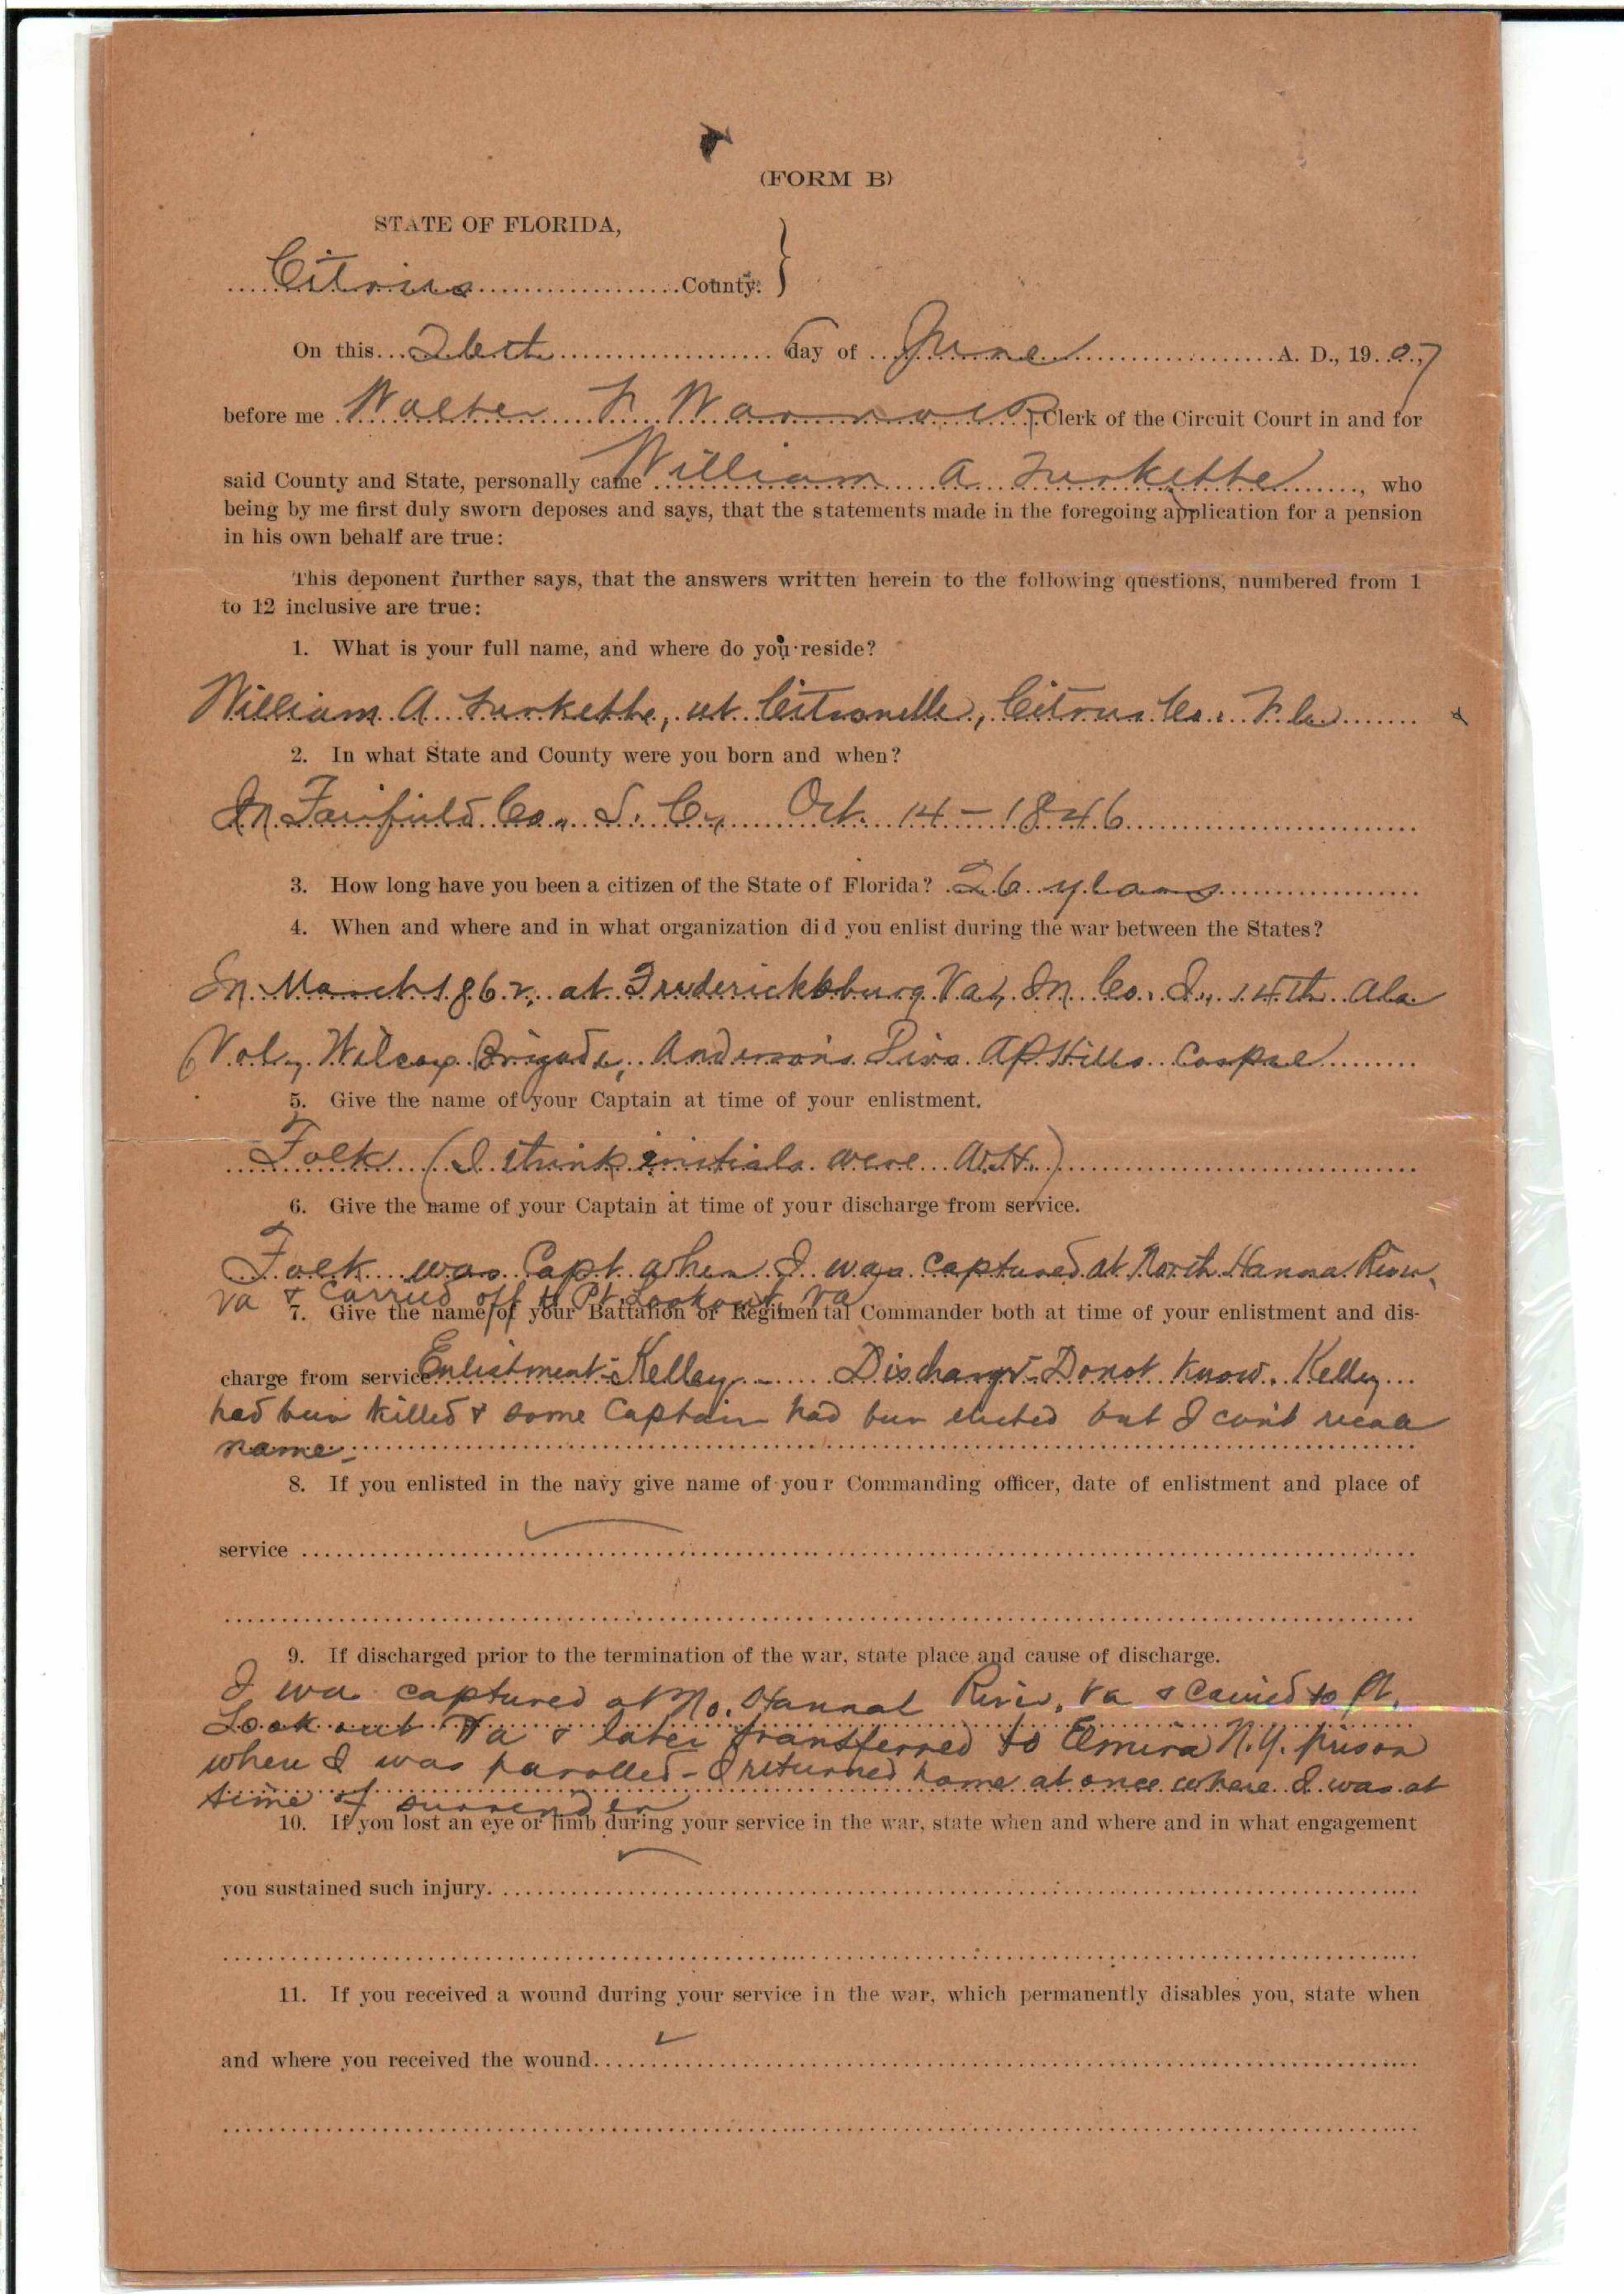 (FORM B)
STATE OF FLORIDA,
Citrus County.
On this 26th day of June A. D., 1907
before me Walter F. Warnock Clerk of the Circuit Court in and for
said County and State, personally came William A Turkette, who
being by me first duly sworn deposes and says, that the statements made in the foregoing application for a pension
in his own behalf are true:
This deponent further says, that the answers written herein to the following questions, numbered from 1
to 12 inclusive are true:
1. What is your full name, and where do you reside?
William A Turkette, at Citronelle, Citrus Co. Fla
2. In what State and County were you born and when?
In Fairfield Co., S. C., Oct. 14 - 1846
3. How long have you been a citizen of the State of Florida? 26 years
4. When and where and in what organization did you enlist during the war between the States?
In March 1862, at Fredericksburg Va, In Co. I, 14th Ala
Vol, Wilcox Brigade, Anderson's Divs AP Hills
5. Give the name of your Captain at time of your enlistment.
Folk (I think initials were )
6. Give the name of your Captain at time of your discharge from service.
Folk was Capt when I was captured at North Hanna River
Va & carried off to Pt. Lookout Va
7. Give the name of your Battalion or Regimental Commander both at time of your enlistment and dis-
charge from service Enlistment - Kelley - Discharge - Do not know. Kelley
had been killed & some Captain had been elected but I can't recall
name -
8. If you enlisted in the navy give name of your Commanding officer, date of enlistment and place of
service
9. If discharged prior to the termination of the war, state place and cause of discharge.
I was captured at No. Hannal River, Va & carried to Pt.
Look out Va & later transferred to Elmira N.Y. prison
when I was parolled - I returned home at once where I was at
time of surrender
10. If you lost an eye or limb during your service in the war, state when and where and in what engagement
you sustained such injury.
11. If you received a wound during your service in the war, which permanently disables you, state when
and where you received the wound.